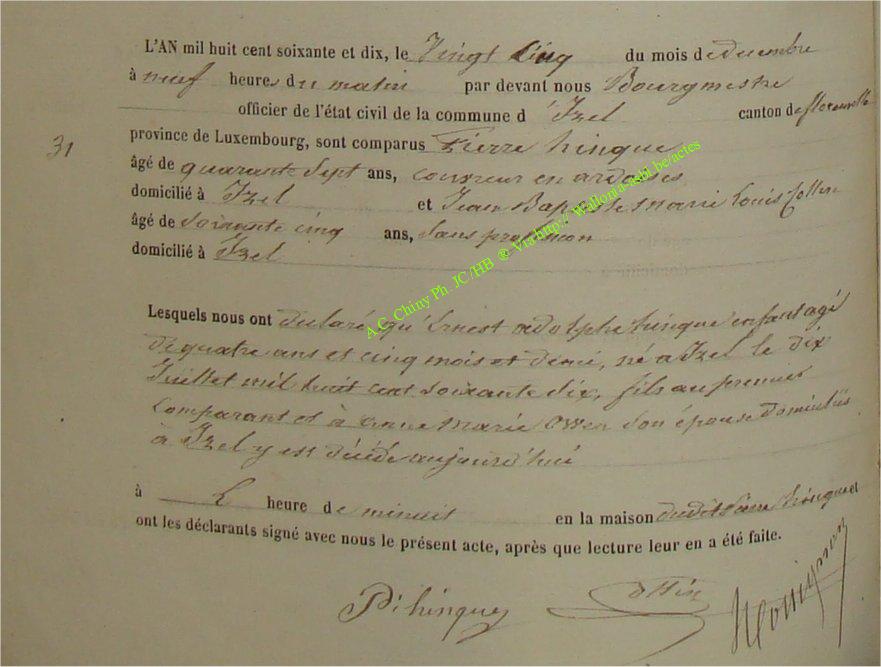 L'AN mil huit cent soixante et dix, le Vingt Cinq du mois de decembre
à neuf heures du matin par devant nous Bourgmestre
officier de l'état civil de la commune d'Izel canton de florenville
31
province de Luxembourg, sont comparus Pierre hinque
âgé de quarante Sept ans, couvreur en ardoises
domicilié à Izel et Jean Baptiste marie Louis
âgé de Soixante cinq ans, Sans profession
domicilié à Izel
A.G. Chiny Ph. JC/HB ® Via http:// Wallonia-asbl.be/actes
Lesquels nous ont déclaré qu'Ernest adolphe hinque enfant agé
de quatre ans et cinq mois et demi, né a Izel le dix
Juillet mil huit cent soixante dix, fils au premier
Comparant et à anne marie son épouse domiciliés
à Izel y est décédé aujourd'hui
à L heure de minuit en la maison dudit Pierre hinque et
ont les déclarants signé avec nous le présent acte, après que lecture leur en a été faite.
P: hinque